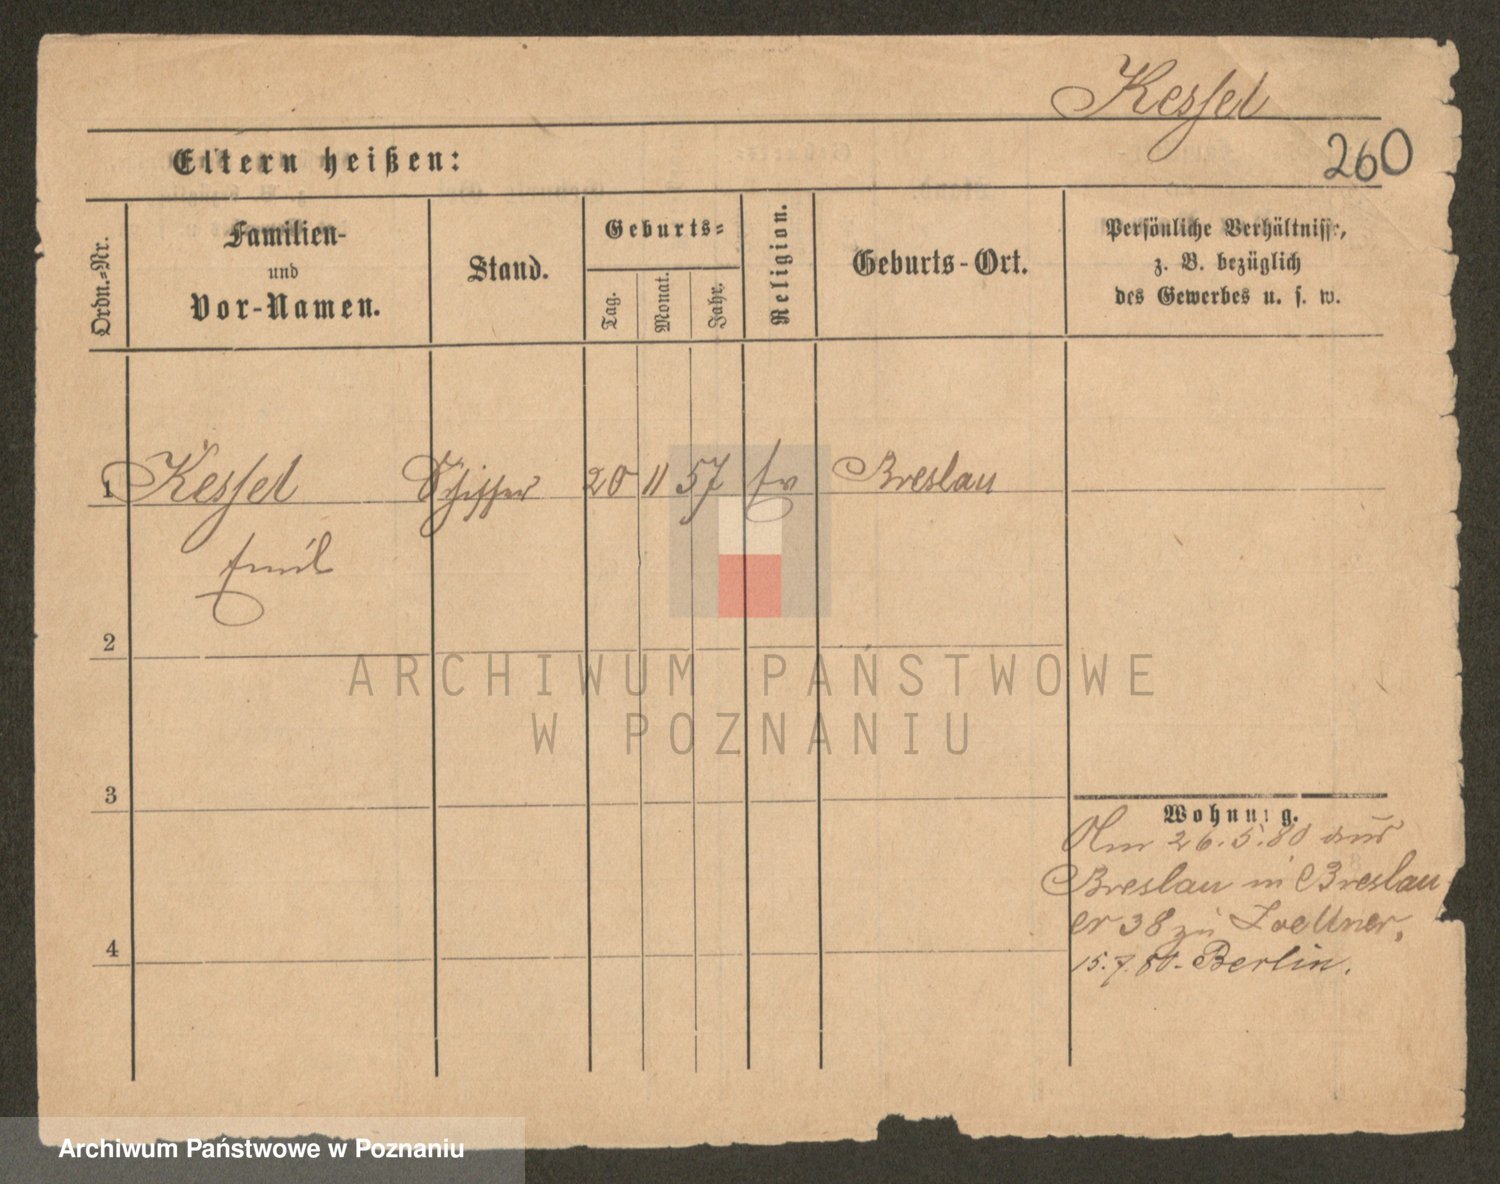 Kessel
260
Eltern heißen:
Ordn.-Nr.
Familien-
und
Vor-Namen.
Stand.
Geburts-
Tag.
Monat.
Jahr.
Religion.
Geburts-Ort.
Persönliche Verhältnisse,
z. B. bezüglich
des Gewerbes u. s. w.
1 Kessel Schiffer 20 11 57 Ev Breslau
Emil
2
ARCHIWUM PAŃSTWOWE
W POZNANIU
3
Wohnung.
Am 26.5.80 aus
Breslau in Breslau
er 38 zu
15.7.80. Berlin.
4
Archiwum Państwowe w Poznaniu